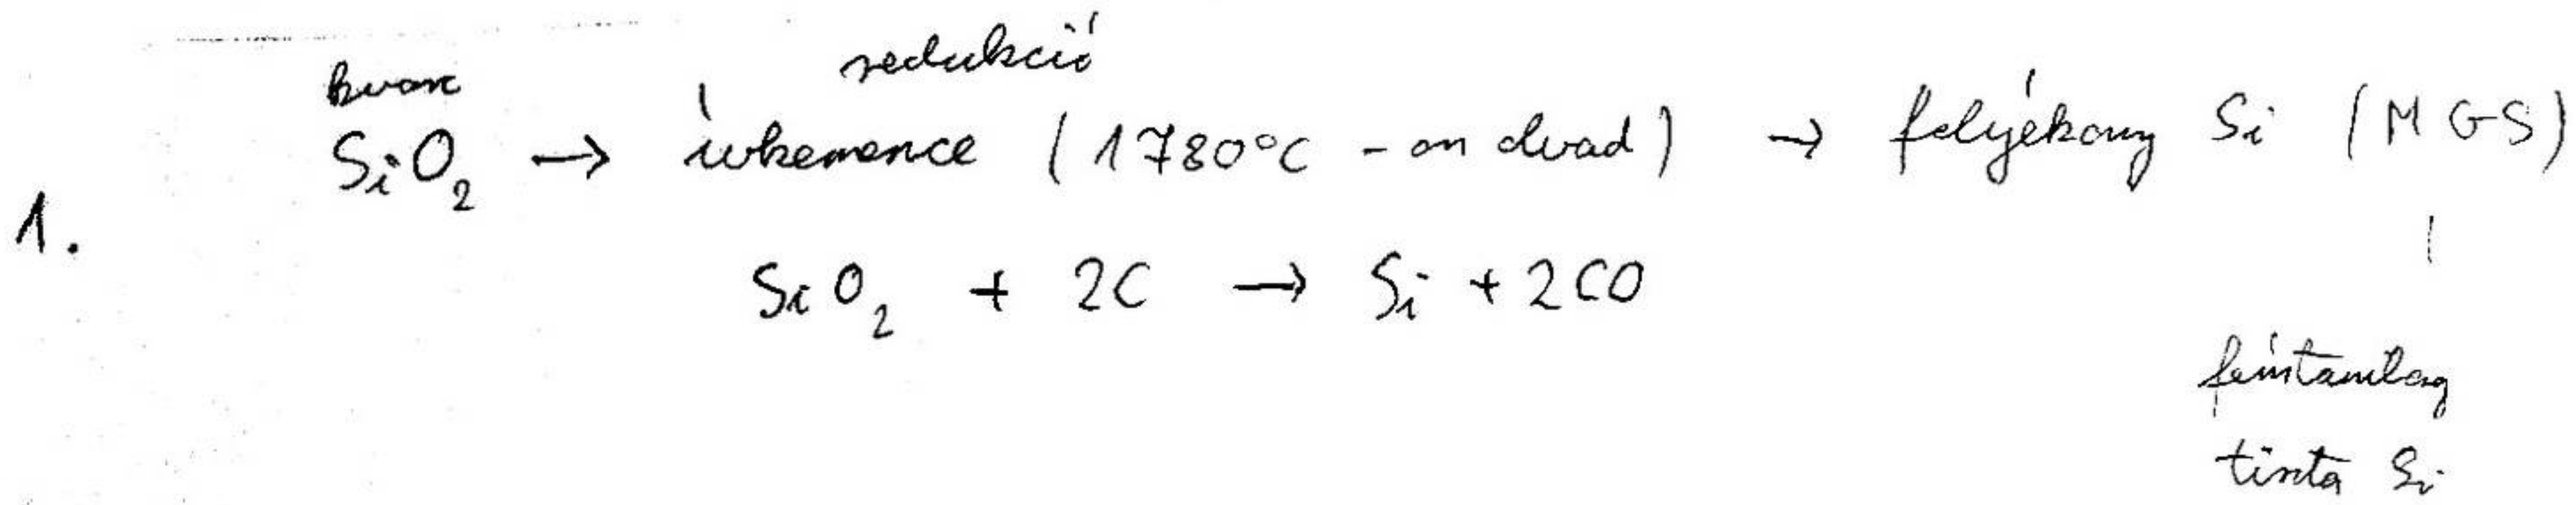 redukció
kvarc
SiO₂ → ívkemence (1780°C - on olvad) → folyékony Si (MGS)
1.
SiO₂ + 2C → Si + 2CO
fémtanilag
tiszta Si